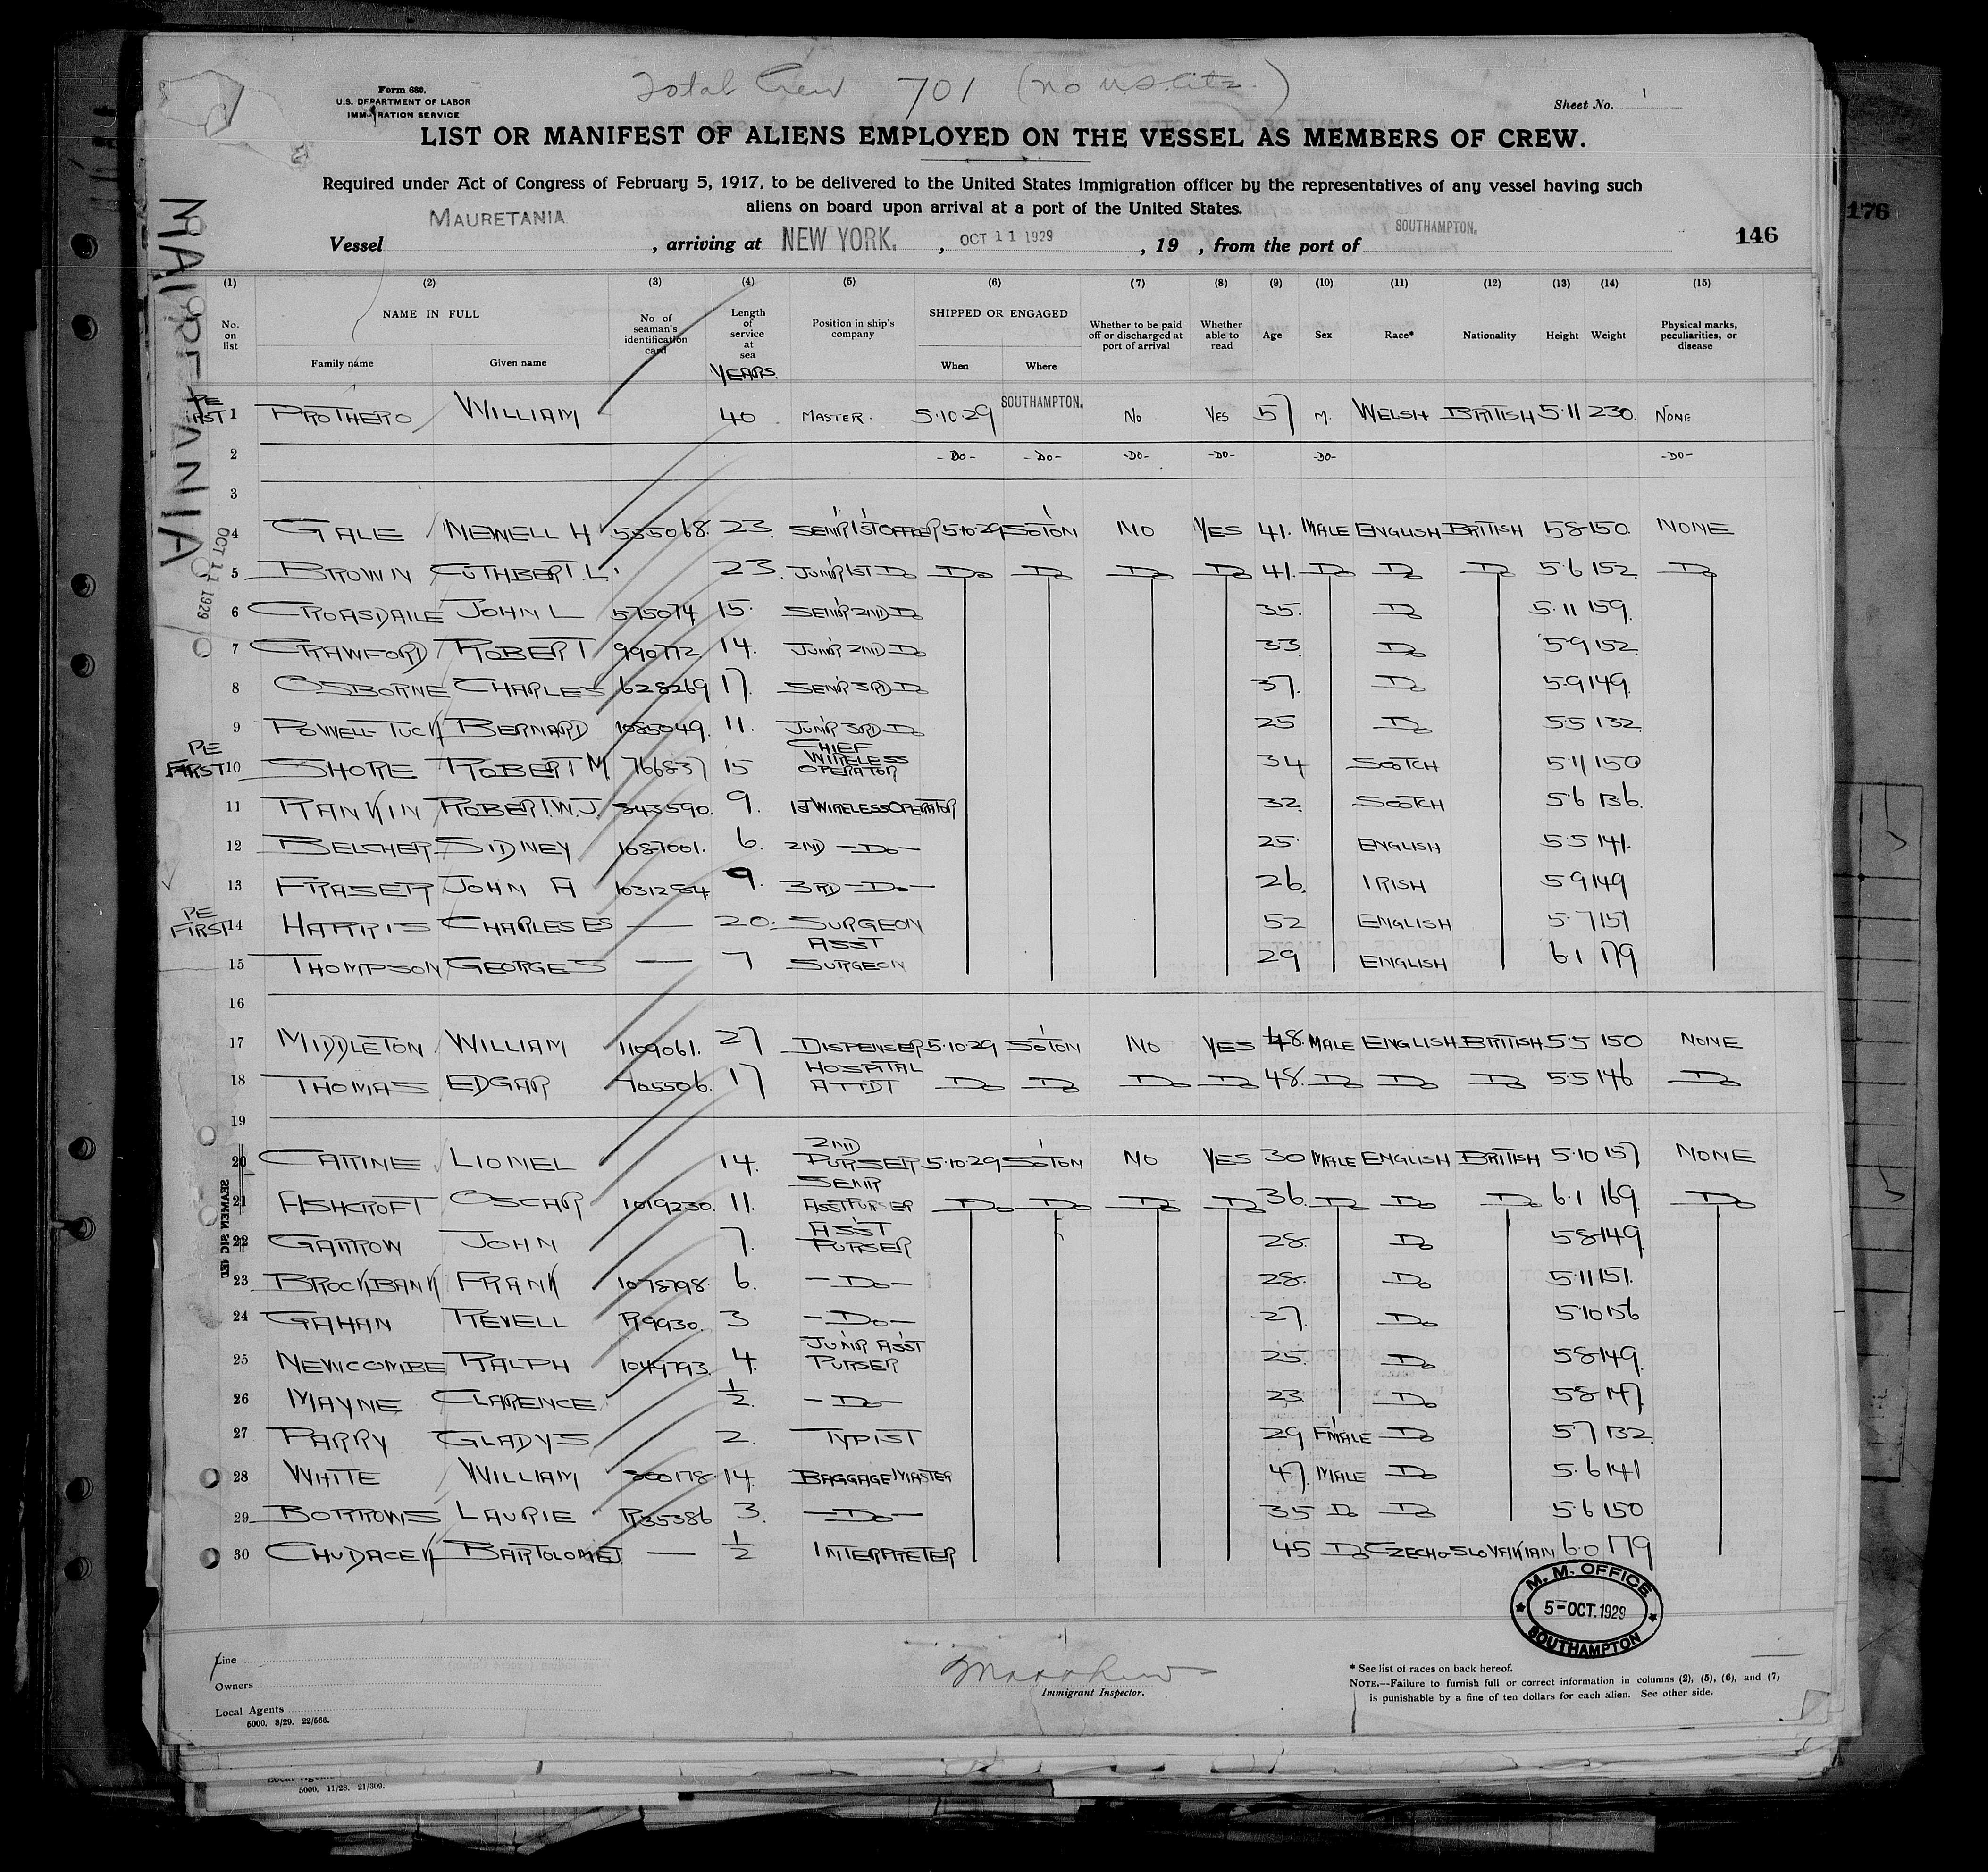 Total Crew 701 (no U.S. citz.)
Form 680.
U.S. DEPARTMENT OF LABOR
IMMIGRATION SERVICE
Sheet No. 1
LIST OR MANIFEST OF ALIENS EMPLOYED ON THE VESSEL AS MEMBERS OF CREW.
Required under Act of Congress of February 5, 1917, to be delivered to the United States immigration officer by the representatives of any vessel having such
aliens on board upon arrival at a port of the United States.
176
146
Vessel MAURETANIA, arriving at NEW YORK., OCT 11 1929, 19 , from the port of SOUTHAMPTON.
MAURETANIA
OCT 11 1929
(1) (2) (3) (4) (5) (6) (7) (8) (9) (10) (11) (12) (13) (14) (15)
No. on list NAME IN FULL Family name Given name No of seaman's identification card Length of service at sea YEARS. Position in ship's company SHIPPED OR ENGAGED When Where Whether to be paid off or discharged at port of arrival Whether able to read Age Sex Race* Nationality Height Weight Physical marks, peculiarities, or disease
PE FIRST 1 PROTHERO WILLIAM 40 MASTER. 5·10·29 SOUTHAMPTON. NO YES 57 M. WELSH BRITISH 5·11 230. NONE
2 -DO- -DO- -DO- -DO- -DO- -DO-
3
4 GALE NEWELL H 555068. 23. SENR 1ST OFFICER 5·10·29 SOTON NO YES 41. MALE ENGLISH BRITISH 5 8 150. NONE
5 BROWN CUTHBERT. L. 23. JUNR 1ST DO DO DO DO DO 41. DO DO DO 5·6 152 DO
6 CROASDAILE JOHN L 575074 15. SENR 2ND DO 35. DO 5·11 159.
7 CRAWFORD ROBERT 990772 14. JUNR 2ND DO 33. DO 5·9 152.
8 OSBORNE CHARLES 628269 17. SENR 3RD DO 37. DO 5·9 149.
9 POWELL-TUCK BERNARD 1085049. 11. JUNR 3RD DO 25 DO 5·5 132
PE FIRST 10 SHORE ROBERT M 766837 15 CHIEF WIRELESS OPERATOR 34 SCOTCH 5·11 150
11 RANKIN ROBERT. W. J. 843590. 9. 1ST WIRELESS OPERATOR 32. SCOTCH 5·6 136.
12 BELCHER SIDNEY 1087001. 6. 2ND -DO- 25. ENGLISH 5·5 141.
13 FRASER JOHN A 1031254 9. 3RD -DO- 26. IRISH 5 9 149
PE FIRST 14 HARRIS CHARLES ES — 20. SURGEON 52 ENGLISH 5·7 151
15 THOMPSON GEORGE S — 7 ASST SURGEON 29 ENGLISH 6·1 179
16
17 MIDDLETON WILLIAM 1109061. 27 DISPENSER 5·10·29 SOTON NO YES 48. MALE ENGLISH BRITISH 5·5 150 NONE
18 THOMAS EDGAR 705506. 17 HOSPITAL ATTDT DO DO DO DO 48. DO DO DO 5·5 146 DO
19
20 CARINE LIONEL 14. 2ND PURSER 5·10·29 SOTON NO YES 30 MALE ENGLISH BRITISH 5·10 157 NONE
21 ASHCROFT OSCAR 1019230. 11. SENR ASST PURSER DO DO DO DO 36. DO DO DO 6·1 169. DO
22 GARROW JOHN 7. ASST PURSER 28. DO 5 8 149.
23 BROCKBANK FRANK 1078798. 6. -DO- 28. DO 5·11 151.
24 GAHAN REVELL R9930. 3 -DO- 27. DO 5·10 156
25 NEWCOMBE RALPH 1049793. 4. JUNR ASST PURSER 25. DO 5 8 149.
26 MAYNE CLARENCE ½ -DO- 23. DO 5 8 147.
27 PARRY GLADYS 2. TYPIST 29 FMALE DO 5·7 132.
28 WHITE WILLIAM 300178. 14. BAGGAGE MASTER 47. MALE DO 5·6 141
29 BORROWS LAURIE R35386 3. -DO- 35 DO DO 5·6 150
30 CHUDACEK BARTOLOMEJ — ½ INTERPRETER 45 DO CZECHO-SLOVAKIAN 6·0 179
M. M. OFFICE
5-OCT. 1929
SOUTHAMPTON
Line
Owners
Local Agents
5000. 3/29. 22/566.
Immigrant Inspector.
* See list of races on back hereof.
NOTE.—Failure to furnish full or correct information in columns (2), (5), (6), and (7),
is punishable by a fine of ten dollars for each alien. See other side.
5000. 11/28. 21/309.